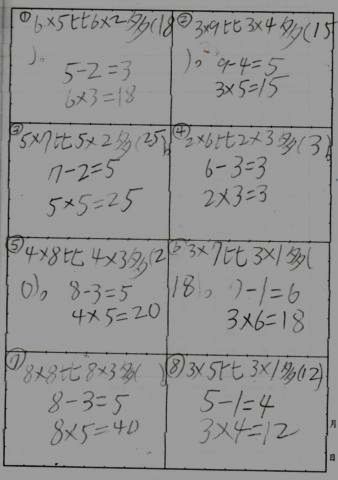 ① 6×5比6×2多(18
)。
5-2=3
6×3=18
② 3×9比3×4多(15
)。 9-4=5
3×5=15
③
5×7比5×2多(25)。
7-2=5
5×5=25
④ 2×6比2×3多(3)。
6-3=3
2×3=3
⑤
4×8比4×3多(2
0)。 8-3=5
4×5=20
⑥ 3×7比3×1多(
18)。 7-1=6
3×6=18
⑦
8×8比8×3多( )
8-3=5
8×5=40
⑧ 3×5比3×1多(12)
5-1=4
3×4=12
月
日